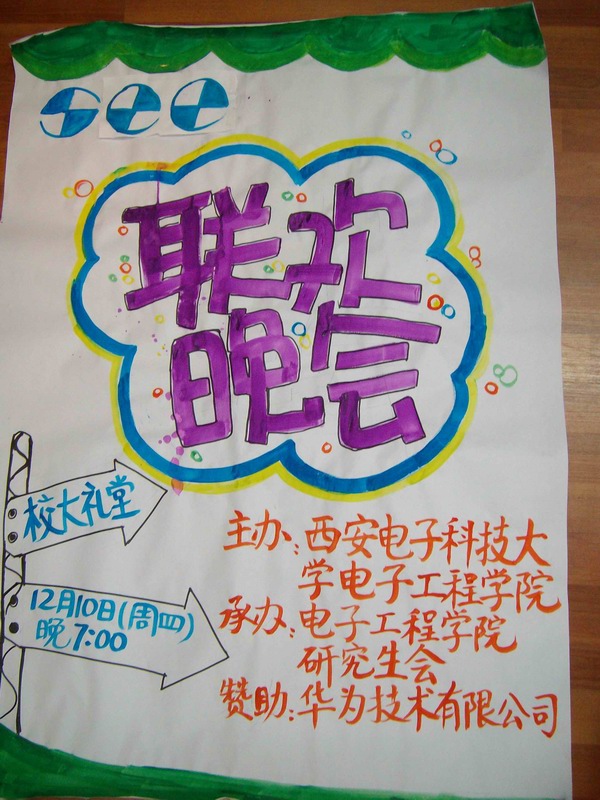 see
联欢
晚会
校大礼堂
12月10日(周四)
晚7:00
主办:西安电子科技大
学电子工程学院
承办:电子工程学院
研究生会
赞助:华为技术有限公司